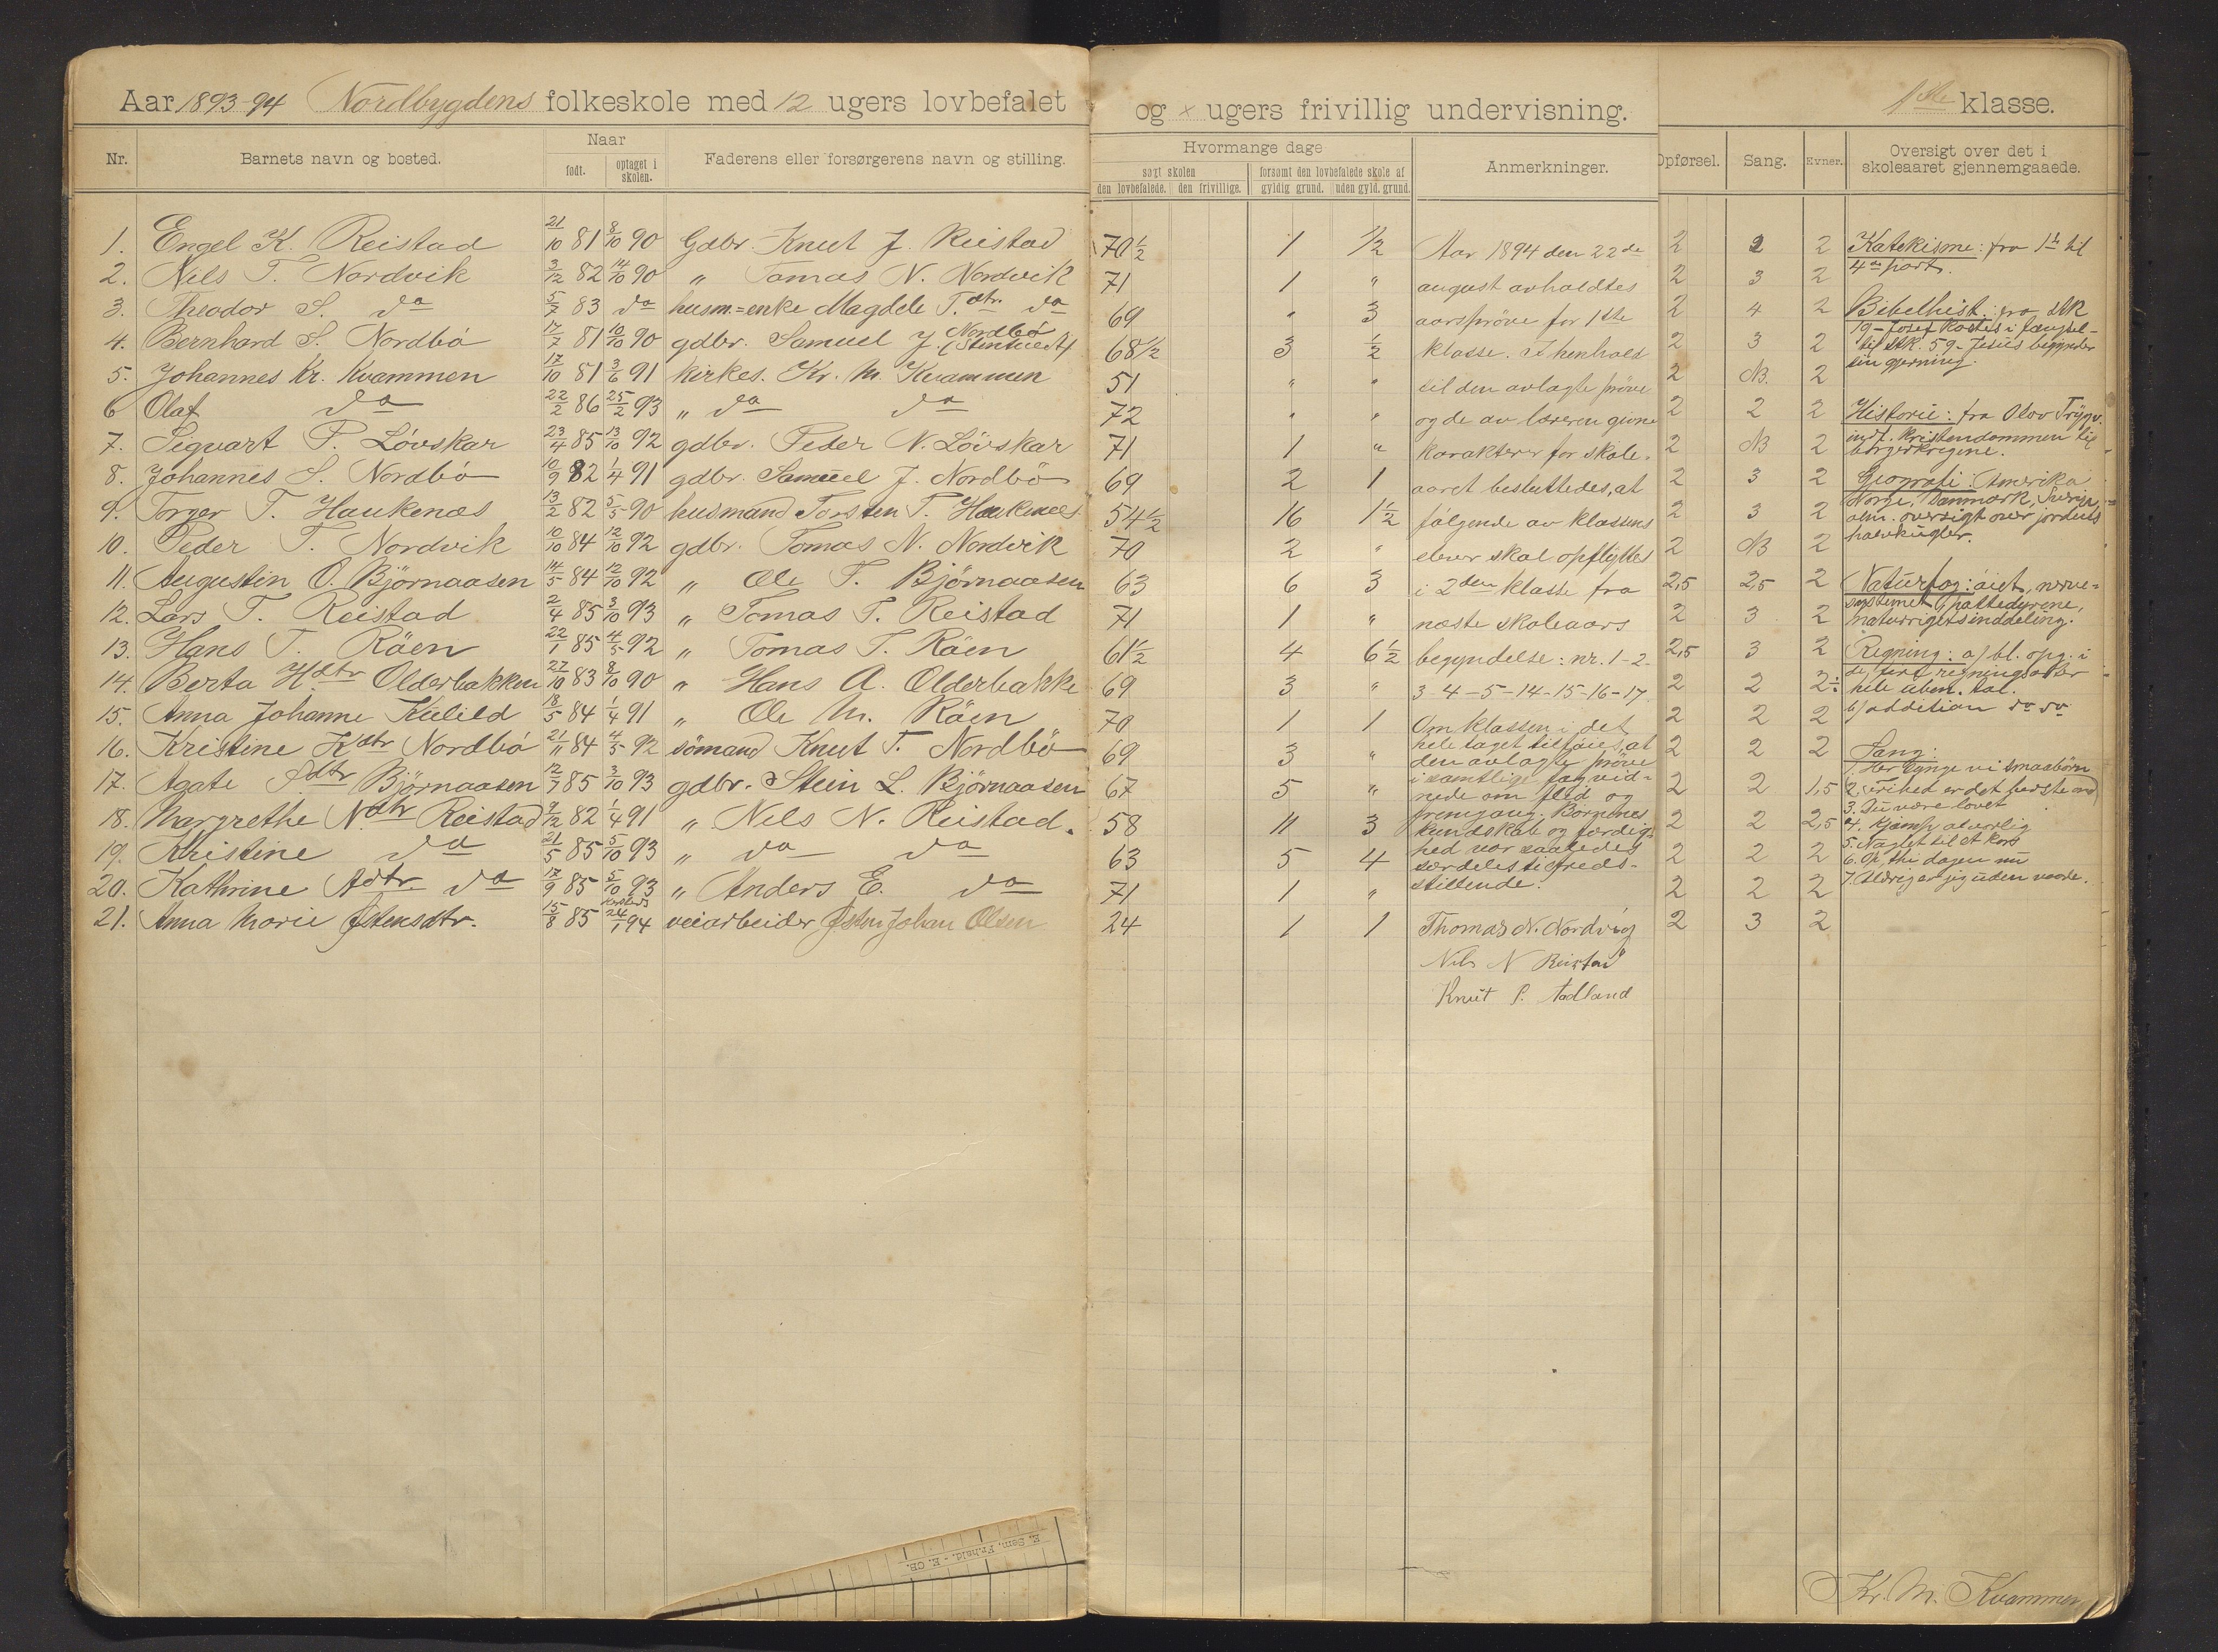 Aar 1893-94 Nordbygdens folkeskole med 12 ugers lovbefalet og × ugers frivillig undervisning. 1ste klasse.
Nr. Barnets navn og bosted. Naar født. optaget i skolen. Faderens eller forsørgerens navn og stilling.
1. Engel K. Reistad 21/10 81 8/10 90 Gdbr. Knut J. Reistad
2. Nils T. Nordvik 3/12 82 14/10 90 " Tomas N. Nordvik
3. Theodor S. do 5/7 83 do husm.=enke Magdele T.dtr. do
4. Bernhard S. Nordbö 17/7 81 10/10 90 gdbr. Samuel J. Nordbö
5. Johannes Kr. Kvammen 17/10 81 3/6 91 kirkes. Kr. M. Kvammen
6 Olaf do 22/2 86 25/2 93 " do do
7. Sigvart P. Lövskar 23/4 85 13/10 92 gdbr. Peder N. Lövskar
8. Johannes S. Nordbö 10/9 82 1/4 91 gdbr. Samuel J. Nordbö
9. Torger T. Haukenæs 13/2 82 5/5 90 husmand Torsten T. Haukenæs
10. Peder T. Nordvik 10/10 84 12/10 92 gdbr. Tomas N. Nordvik
11. Augustin O. Björnaasen 14/5 84 12/10 92 " Ole T. Björnaasen
12. Lars T. Reistad 2/4 85 3/10 93 " Tomas T. Reistad
13. Hans T. Röen 22/1 85 4/5 92 " Tomas T. Röen
14. Berta H.dtr Olderbakken 27/10 83 8/10 90 " Hans A. Olderbakke
15. Anna Johanne Kulild 18/5 84 1/4 91 " Ole M. Röen
16. Kristine K.dtr Nordbö 21/11 84 4/5 92 sömand Knut T. Nordbö
17. Agate S.dtr Björnaasen 12/7 85 3/10 93 gdbr. Stein L. Björnaasen
18. Margrethe N.dtr Reistad 9/12 82 1/4 91 " Nils N. Reistad.
19. Kristine do 21/5 85 5/10 93 " do do
20. Kathrine A.dtr. do 17/9 85 5/10 93 " Anders E. do
21. Anna Marie Østensdtr. 15/8 85 24/1 94 veiarbeider Østen Johan Olsen
E. Sem, Fr.hald. - E. CB.
Hvormange dage
søgt skolen
den lovbefalede. den frivillige.
forsømt den lovbefalede skole af
gyldig grund. uden gyld. grund.
70 1/2 1 1/2
71 1 "
69 " 3
68 1/2 3 1/2
51 " "
72 " "
71 1 "
69 2 1
54 1/2 16 1 1/2
70 2 "
63 6 3
71 1 "
61 1/2 4 6 1/2
69 3 "
70 1 1
69 3 "
67 5 "
58 11 3
63 5 4
71 1 "
24 1 1
Anmerkninger.
Aar 1894 den 22de
august avholdtes
aarspröve for 1ste
klasse. I henhold
til den avlagte pröve
og de av læreren givne
karakterer for skole-
aaret besluttedes, at
følgende av klassens
elever skal opflyttes
i 2den klasse fra
næste skoleaars
begyndelse: nr. 1-2-
3-4-5-14-15-16-17.
Om klassen i det
hele taget tilföies, at
den avlagte pröve
i samtlige fag vid-
nede om flid og
fremgang. Börnenes
kundskab og færdig-
hed var saaledes
særdeles tilfreds-
stillende.
Thomas N. Nordvig
Nils N Reistad
Knut S. Aadland
Opførsel. Sang. Evner.
2 2 2
2 3 2
2 4 2
2 3 2
2 NB. 2
2 2 2
2 NB 2
2 3 2
2 3 2
2 NB 2
2,5 2,5 2
2 3 2
2,5 3 2
2 2 2÷
2 2 2
2 2 2
2 2 1,5
2 2 2,5
2 2 2
2 2 2
2 3 2
Oversigt over det i skoleaaret gjennemgaaede.
Katekisme: fra 1ste til
4de part.
Bibelhist.: fra stk
19 - Josef kastes i fængsel -
til stk. 59 - Jesus begynder
sin gjerning.
Historie: fra Olav Trygv.
indf. kristendommen til
borgerkrigene.
Geografi: Amerika
Norge, Danmark, Sverige,
alm. oversigt over jordens
halvkugler.
Naturfag: öiet, nerve-
systemet, pattedyrene,
naturrigets inddeling.
Regning: a) bl. opg. i
de fire regningsarter
hele uben. tal.
b) addition do do
Sang:
1. Her synge vi smaabörn
2. Frihed er det bedste
3. Du være lovet
4. Kjæmp alvorlig
5. Naglet til et kors
6. Op, thi dagen nu
7. Aldrig er jeg uden vaade.
Kr. M. Kvammen